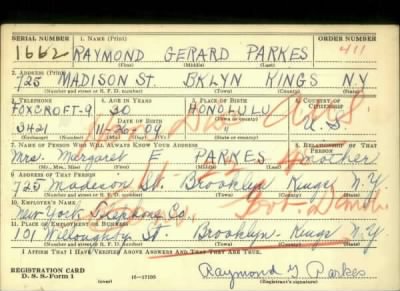 SERIAL NUMBER 1. NAME (Print) ORDER NUMBER
1662 RAYMOND GERARD PARKES 411
(First) (Middle) (Last)
2. ADDRESS (Print)
725 MADISON ST. BKLYN KINGS N.Y.
(Number and street or R. F. D. number) (Town) (County) (State)
3. TELEPHONE 4. AGE IN YEARS 5. PLACE OF BIRTH 6. COUNTRY OF CITIZENSHIP
FOXCROFT-9 30 HONOLULU
DATE OF BIRTH (Town or county)
3421 U.S.
(Exchange) (Number) (Mo.) (Day) (Yr.) (State or country)
7. NAME OF PERSON WHO WILL ALWAYS KNOW YOUR ADDRESS 8. RELATIONSHIP OF THAT PERSON
Mrs. Margaret E PARKES mother
(Mr., Mrs., Miss) (First) (Middle) (Last)
9. ADDRESS OF THAT PERSON
725 Madison St. Brooklyn Kings N.Y.
(Number and street or R. F. D. number) (Town) (County) (State)
10. EMPLOYER'S NAME
New York Telephone Co.
11. PLACE OF EMPLOYMENT OR BUSINESS
101 Willoughby St. Brooklyn Kings N.Y.
(Number and street or R. F. D. number) (Town) (County) (State)
I AFFIRM THAT I HAVE VERIFIED ABOVE ANSWERS AND THAT THEY ARE TRUE.
REGISTRATION CARD
D. S. S. Form 1 (over) 16-17105 Raymond G Parkes
(Registrant's signature)